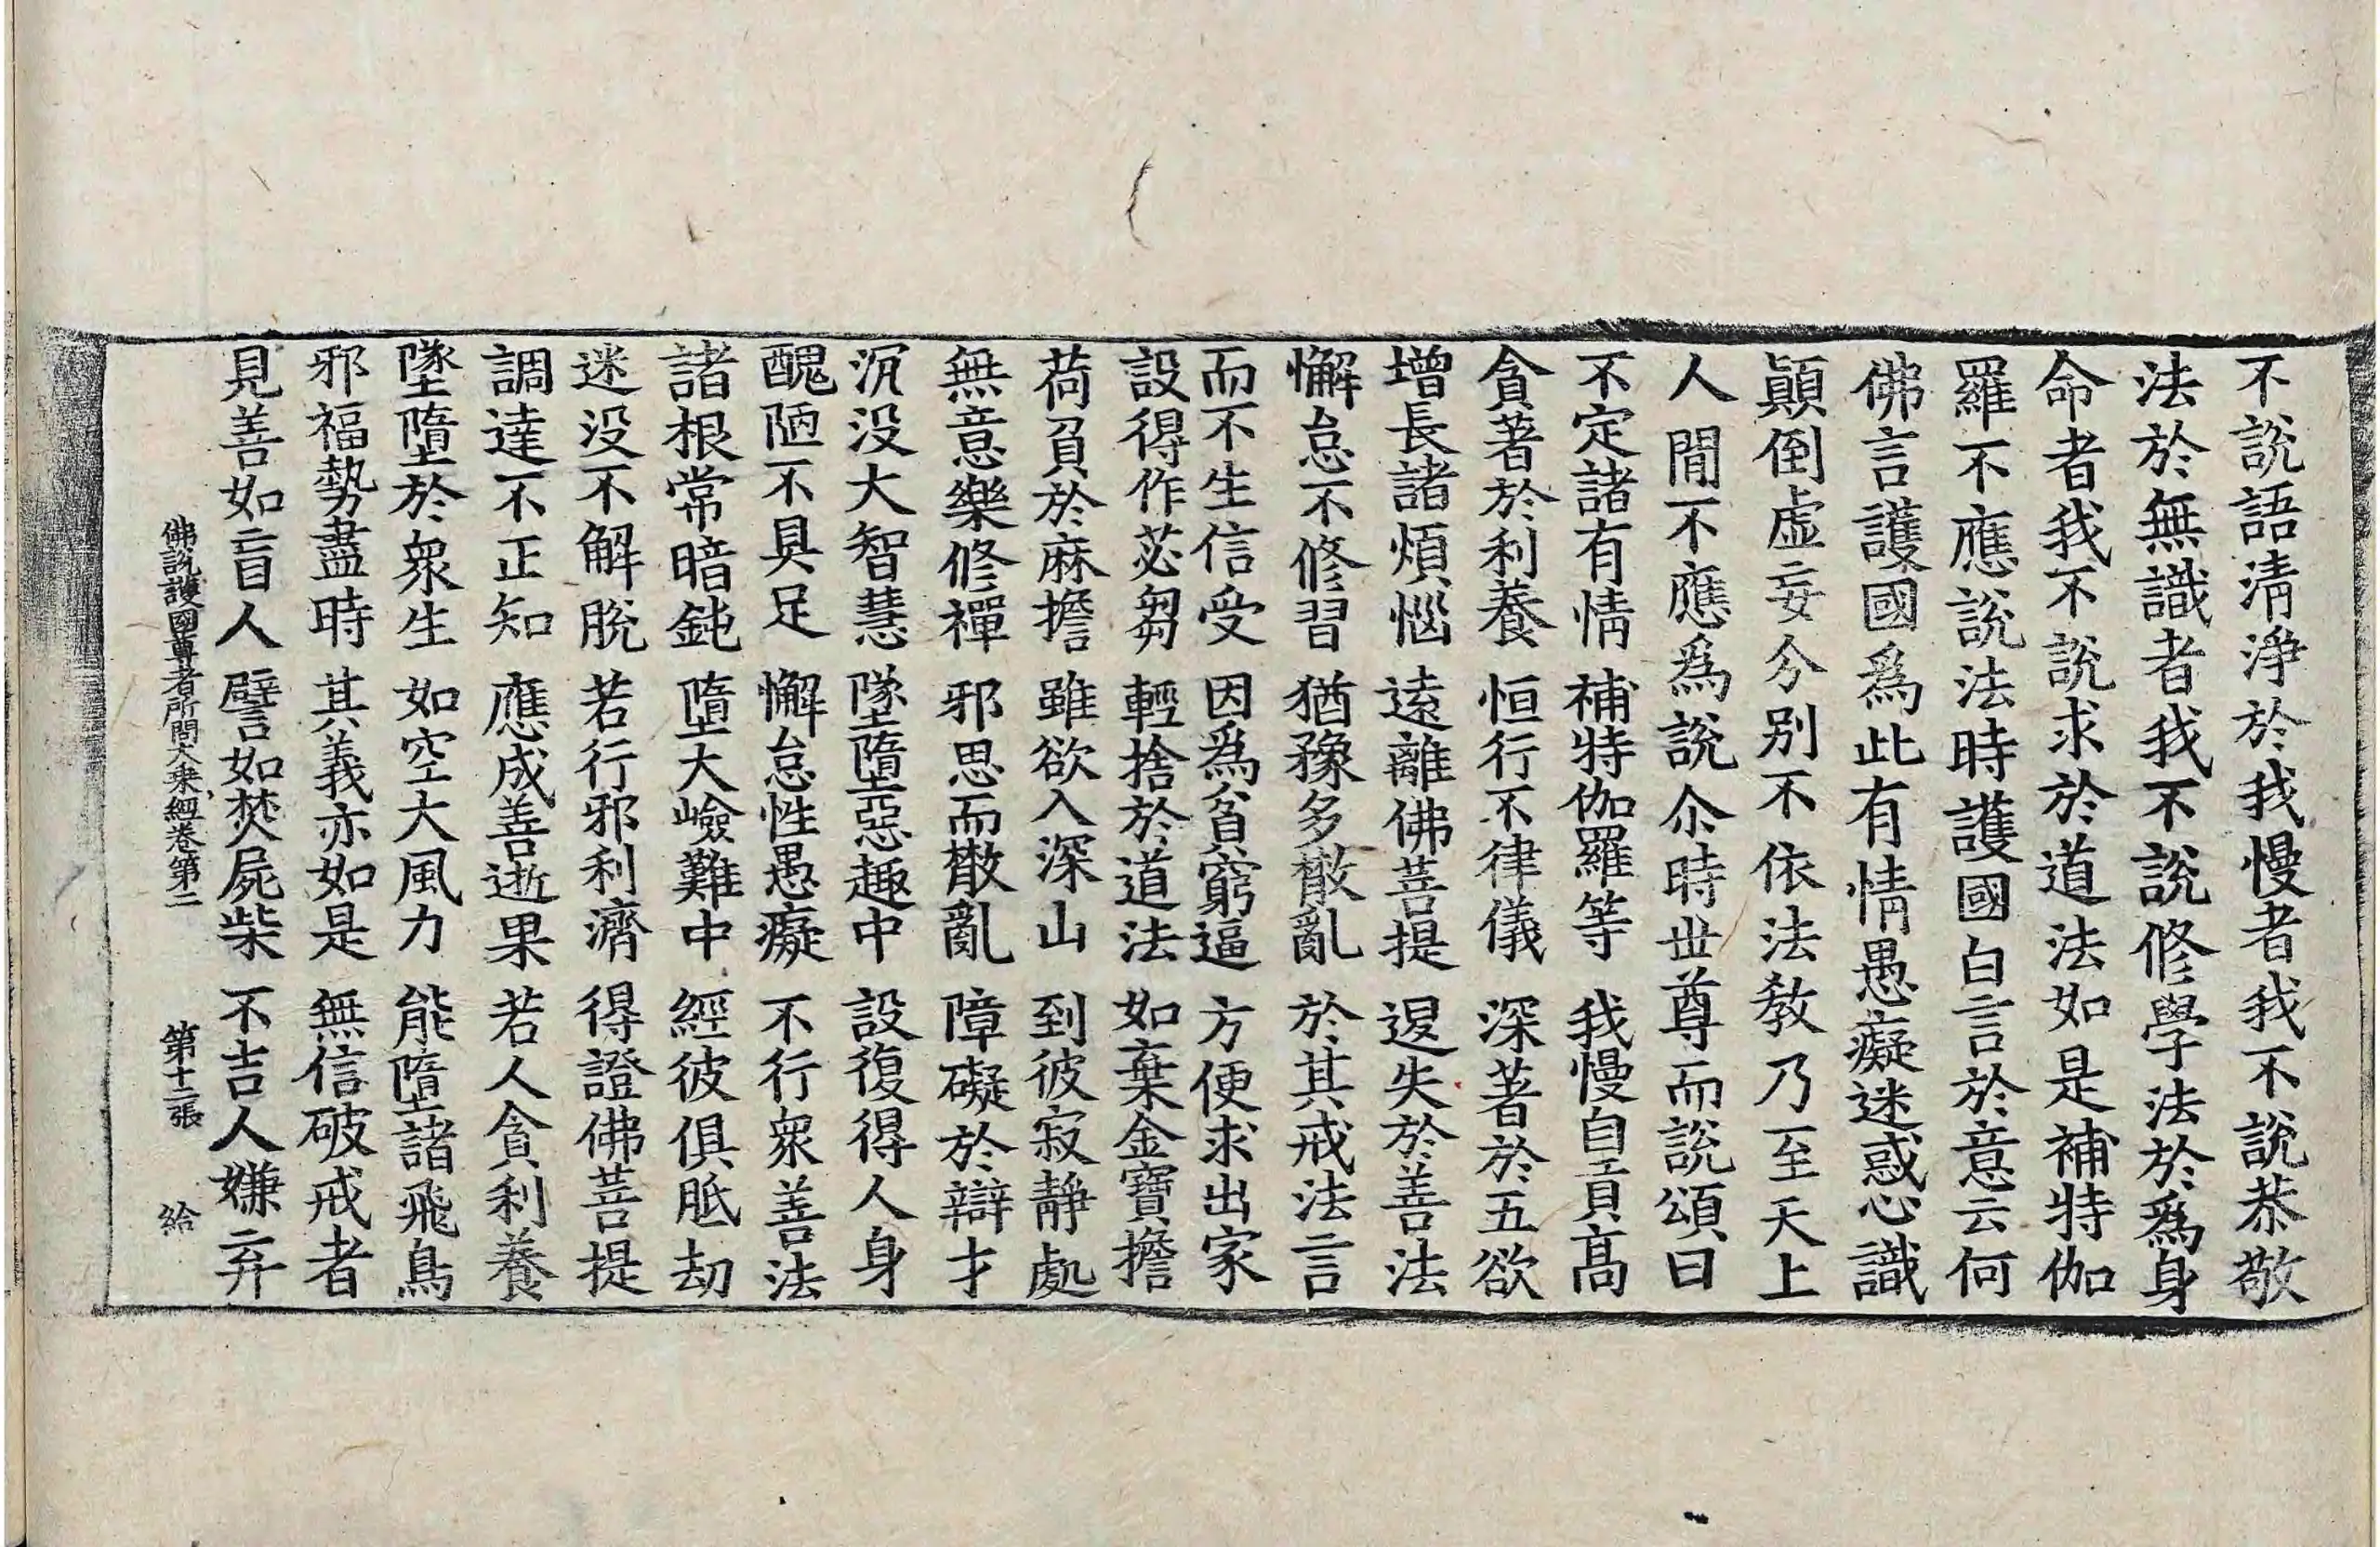 不說語清淨於我慢者我不說恭敬
法於無識者我不說修學法於爲身
命者我不說求於道法如是補特伽
羅不應說法時護國白言於意云何
佛言護國爲此有情愚癡迷惑心識
顚倒虛妄分別不依法教乃至天上
人間不應爲說尒時世尊而說頌曰
不定諸有情　補特伽羅等　我慢自貢高
貪著於利養　恒行不律儀　深著於五欲
增長諸煩惱　遠離佛菩提　退失於善法
懈怠不修習　猶豫多散亂　於其戒法言
而不生信受　因爲貧窮逼　方便求出家
設得作苾芻　輕捨於道法　如棄金寶擔
荷負於麻擔　雖欲入深山　到彼寂靜處
無意樂修禪　邪思而散亂　障礙於辯才
沉没大智慧　墜墮惡趣中　設復得人身
醜陋不具足　懈怠性愚癡　不行衆善法
諸根常暗鈍　墮大嶮難中　經彼俱胝劫
迷没不解脫　若行邪利濟　得證佛菩提
調達不正知　應成善逝果　若人貪利養
墜墮於衆生　如空大風力　能墮諸飛鳥
邪福勢盡時　其義亦如是　無信破戒者
見善如盲人　譬如焚屍柴　不吉人嫌弃
佛說護國尊者所問大乘經卷第二　第十二張　給